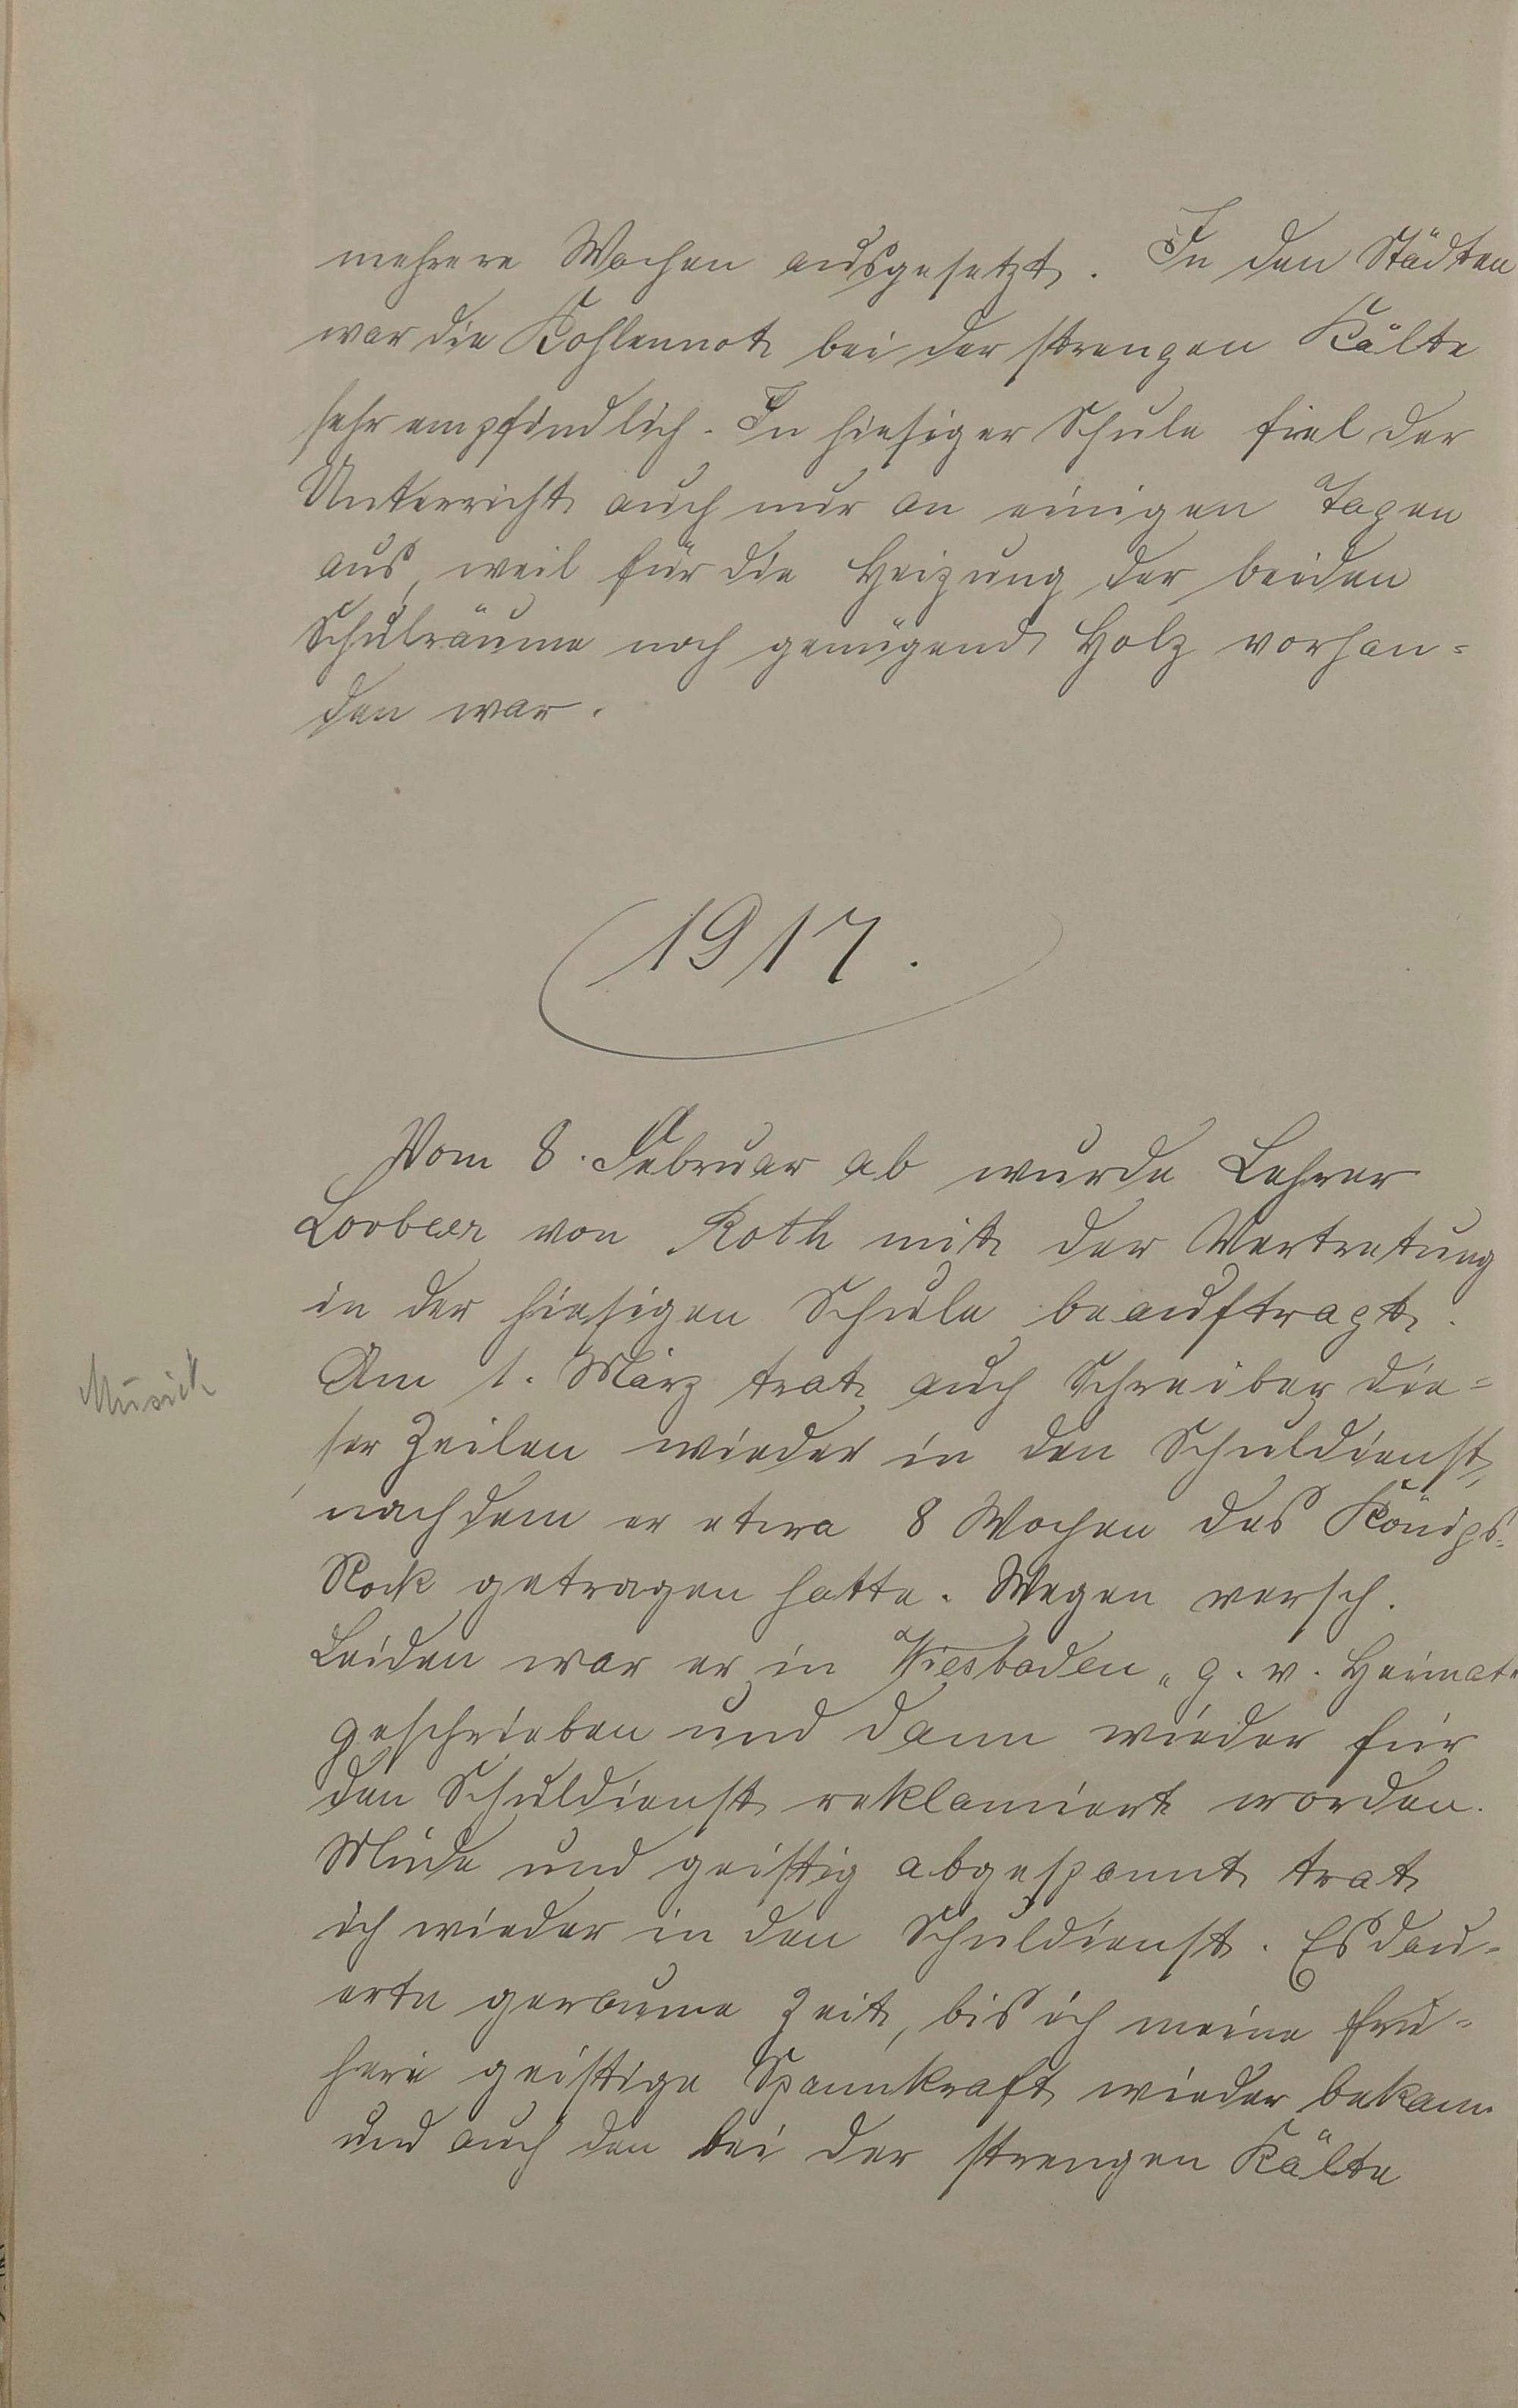 mehrere Wochen ausgesetzt. In den Städten
war die Kohlennot bei der strengen Kälte
sehr empfindlich. In hiesiger Schule fiel der
Unterricht auch nur an einigen Tagen
aus, weil für die Heizung der beiden
Schulräume noch genügend Holz vorhan=
den war.
1917.
Vom 8. Februar ab wurde Lehrer
Loobeer von Roth mit der Vertretung
in der hiesigen Schule beauftragt.
Musick
Am 1. März trat auch Schreiber die=
ser Zeilen wieder in den Schuldienst,
nachdem er etwa 8 Wochen des Königs=
Rock getragen hatte. Wegen versch.
Leiden war er in Wiesbaden „g. v. Heimat"
geschrieben und dann wieder für
den Schuldienst reklamiert worden.
Müde und geistig abgespannt trat
ich wieder in den Schuldienst. Es dau=
erte geraume Zeit, bis ich meine frü=
here geistige Spannkraft wieder bekam
und auch den bei der strengen Kälte